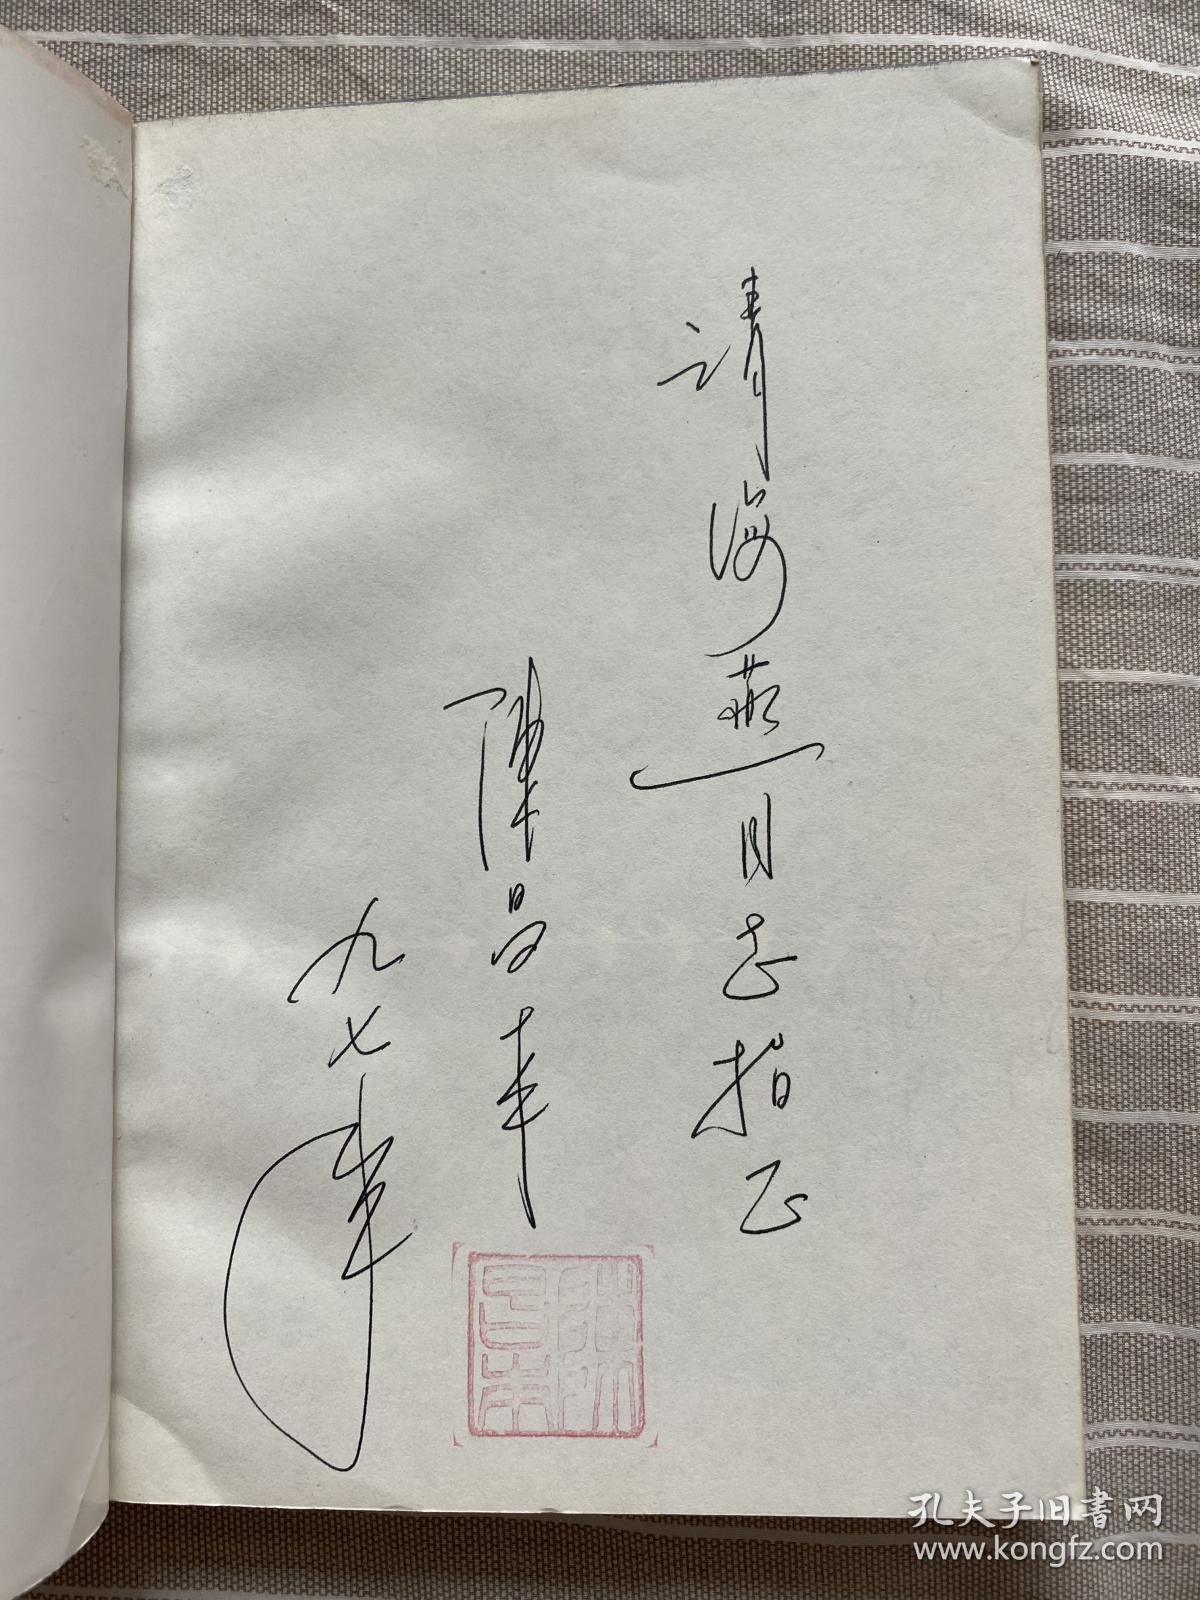 请海燕同志指正
陳昌本
九七年
陳昌本
孔夫子旧書网
www.kongfz.com